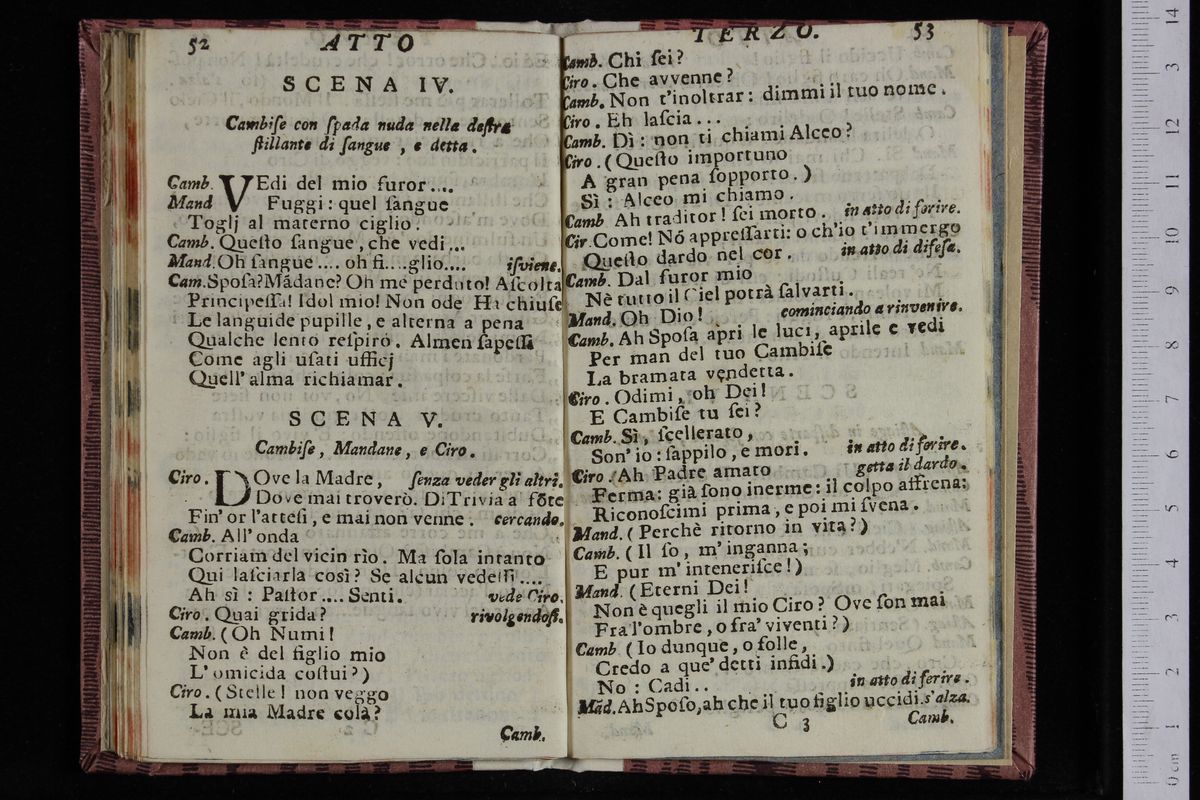 52 ATTO
SCENA IV.
Cambiſe con ſpada nuda nella deſtra
ſtillante di ſangue , e detta .
Camb. VEdi del mio furor ....
Mand Fuggi : quel ſangue
Toglj al materno ciglio .
Camb. Queſto ſangue , che vedi ...
Mand. Oh ſangue .... oh fi....glio.... iſviene.
Cam. Spoſa? Mādane? Oh me perduto! Aſcolta
Principeſſa! Idol mio! Non ode Ha chiuſe
Le languide pupille , e alterna a pena
Qualche lento reſpiro . Almen ſapeſſi
Come agli uſati ufficj
Quell' alma richiamar .
SCENA V.
Cambiſe, Mandane, e Ciro.
Ciro. DOve la Madre, ſenza veder gli altri.
Dove mai troverò. Di Trivia a fōte
Fin' or l'atteſi , e mai non venne . cercando.
Camb. All' onda
Corriam del vicin rìo. Ma ſola intanto
Qui laſciarla così? Se alcun vedeſſi ....
Ah sì : Paſtor .... Senti. vede Ciro.
Ciro. Quai grida? rivolgendoſi.
Camb. (Oh Numi!
Non è del figlio mio
L'omicida coſtui?)
Ciro. (Stelle! non veggo
La mia Madre colà?
Camb.
TERZO. 53
Camb. Chi ſei?
Ciro. Che avvenne?
Camb. Non t'inoltrar : dimmi il tuo nome.
Ciro. Eh laſcia ...
Camb. Dì : non ti chiami Alceo?
Ciro. (Queſto importuno
A gran pena ſopporto.)
Sì : Alceo mi chiamo.
Camb Ah traditor! ſei morto. in atto di ferire.
Cir. Come! Nó appreſſarti: o ch'io t'immergo
Queſto dardo nel cor. in atto di difeſa.
Camb. Dal furor mio
Nè tutto il Ciel potrà ſalvarti.
Mand. Oh Dio! cominciando a rinvenire.
Camb. Ah Spoſa apri le luci, aprile e vedi
Per man del tuo Cambiſe
La bramata vendetta.
Ciro. Odimi, oh Dei!
E Cambiſe tu ſei?
Camb. Sì, ſcellerato,
Son' io : ſappilo , e mori. in atto di ferire.
Ciro. Ah Padre amato getta il dardo.
Ferma: già ſono inerme: il colpo affrena:
Riconoſcimi prima , e poi mi ſvena.
Mand. ( Perchè ritorno in vita?)
Camb. (Il ſo, m'inganna;
E pur m'inteneriſce!)
Mand. (Eterni Dei!
Non è quegli il mio Ciro? Ove ſon mai
Fra l'ombre, o fra' viventi?)
Camb. (Io dunque, o folle,
Credo a que' detti infidi.)
No : Cadi .. in atto di ferire.
Mād. Ah Spoſo, ah che il tuo figlio uccidi. s'alza.
C 3 Camb.